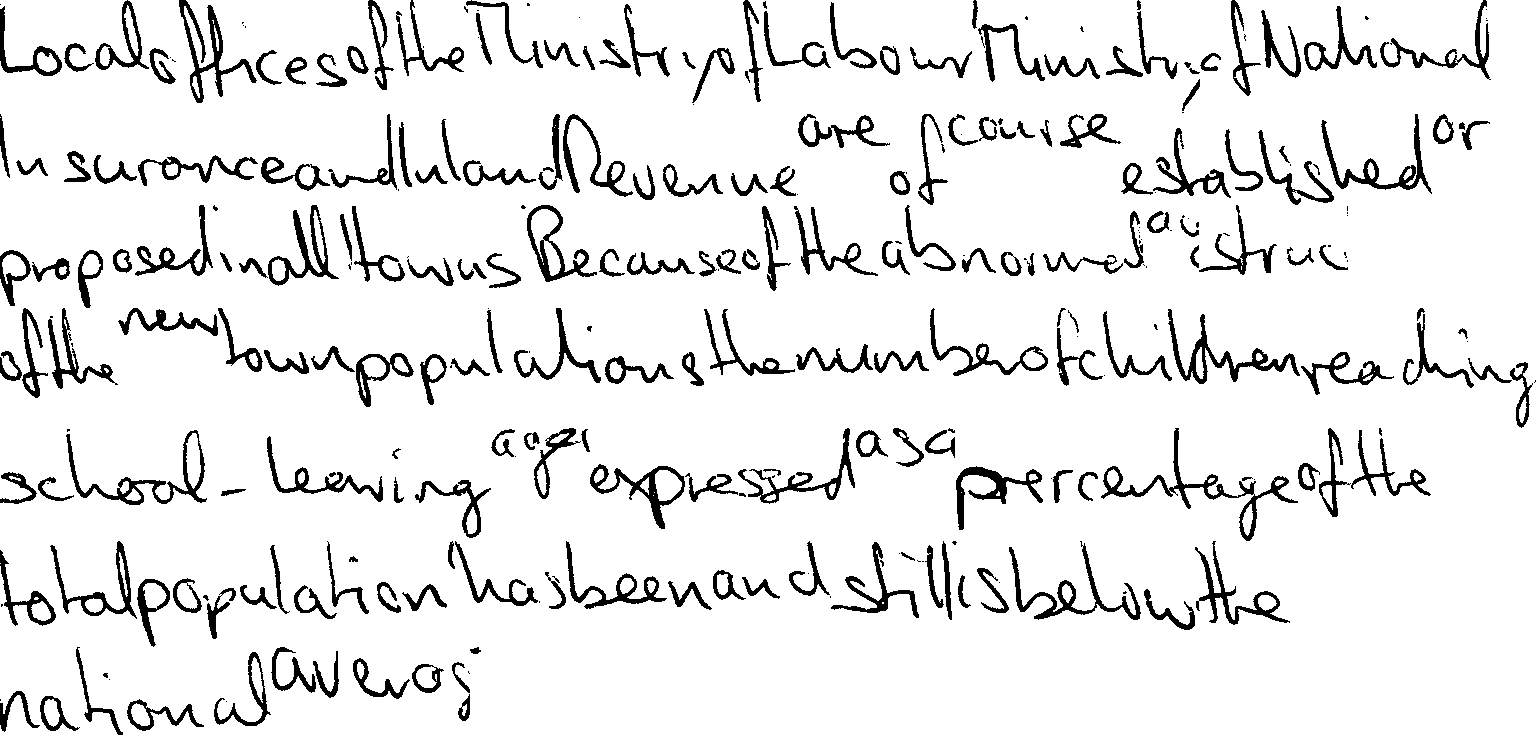 Local offices of the Ministry of Labour Ministry of National
Insurance and Inland Revenue are of course established or
proposed in all towns Because of the abnormal
of the new town populations the number of children reaching
school-leaving age expressed as a percentage of the
total population has been and still is below the
national